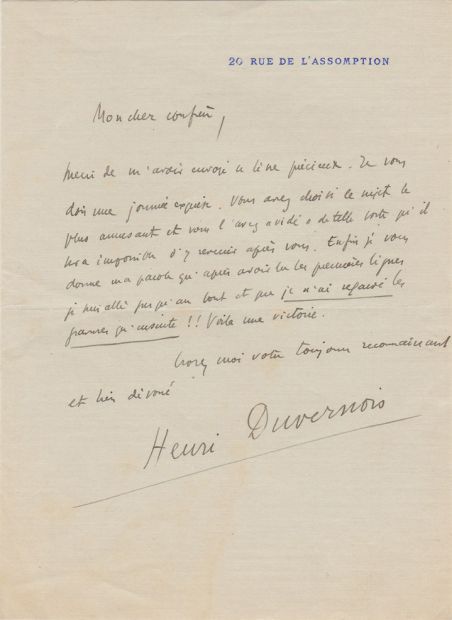 20 RUE DE L'ASSOMPTION
Mon cher confrère,
Merci de m'avoir envoyé ce livre précieux. Je vous
dois une journée exquise. Vous avez choisi le sujet le
plus amusant et vous l'avez vidé de telle sorte qu'il
sera impossible d'y revenir après vous. Enfin je vous
donne ma parole qu'après avoir lu les premières lignes
je suis allé jusqu'au bout et que je n'ai regardé les
gravures qu'ensuite !! Voilà une victoire.
Croyez moi votre toujours reconnaissant
et bien dévoué
Henri Duvernois